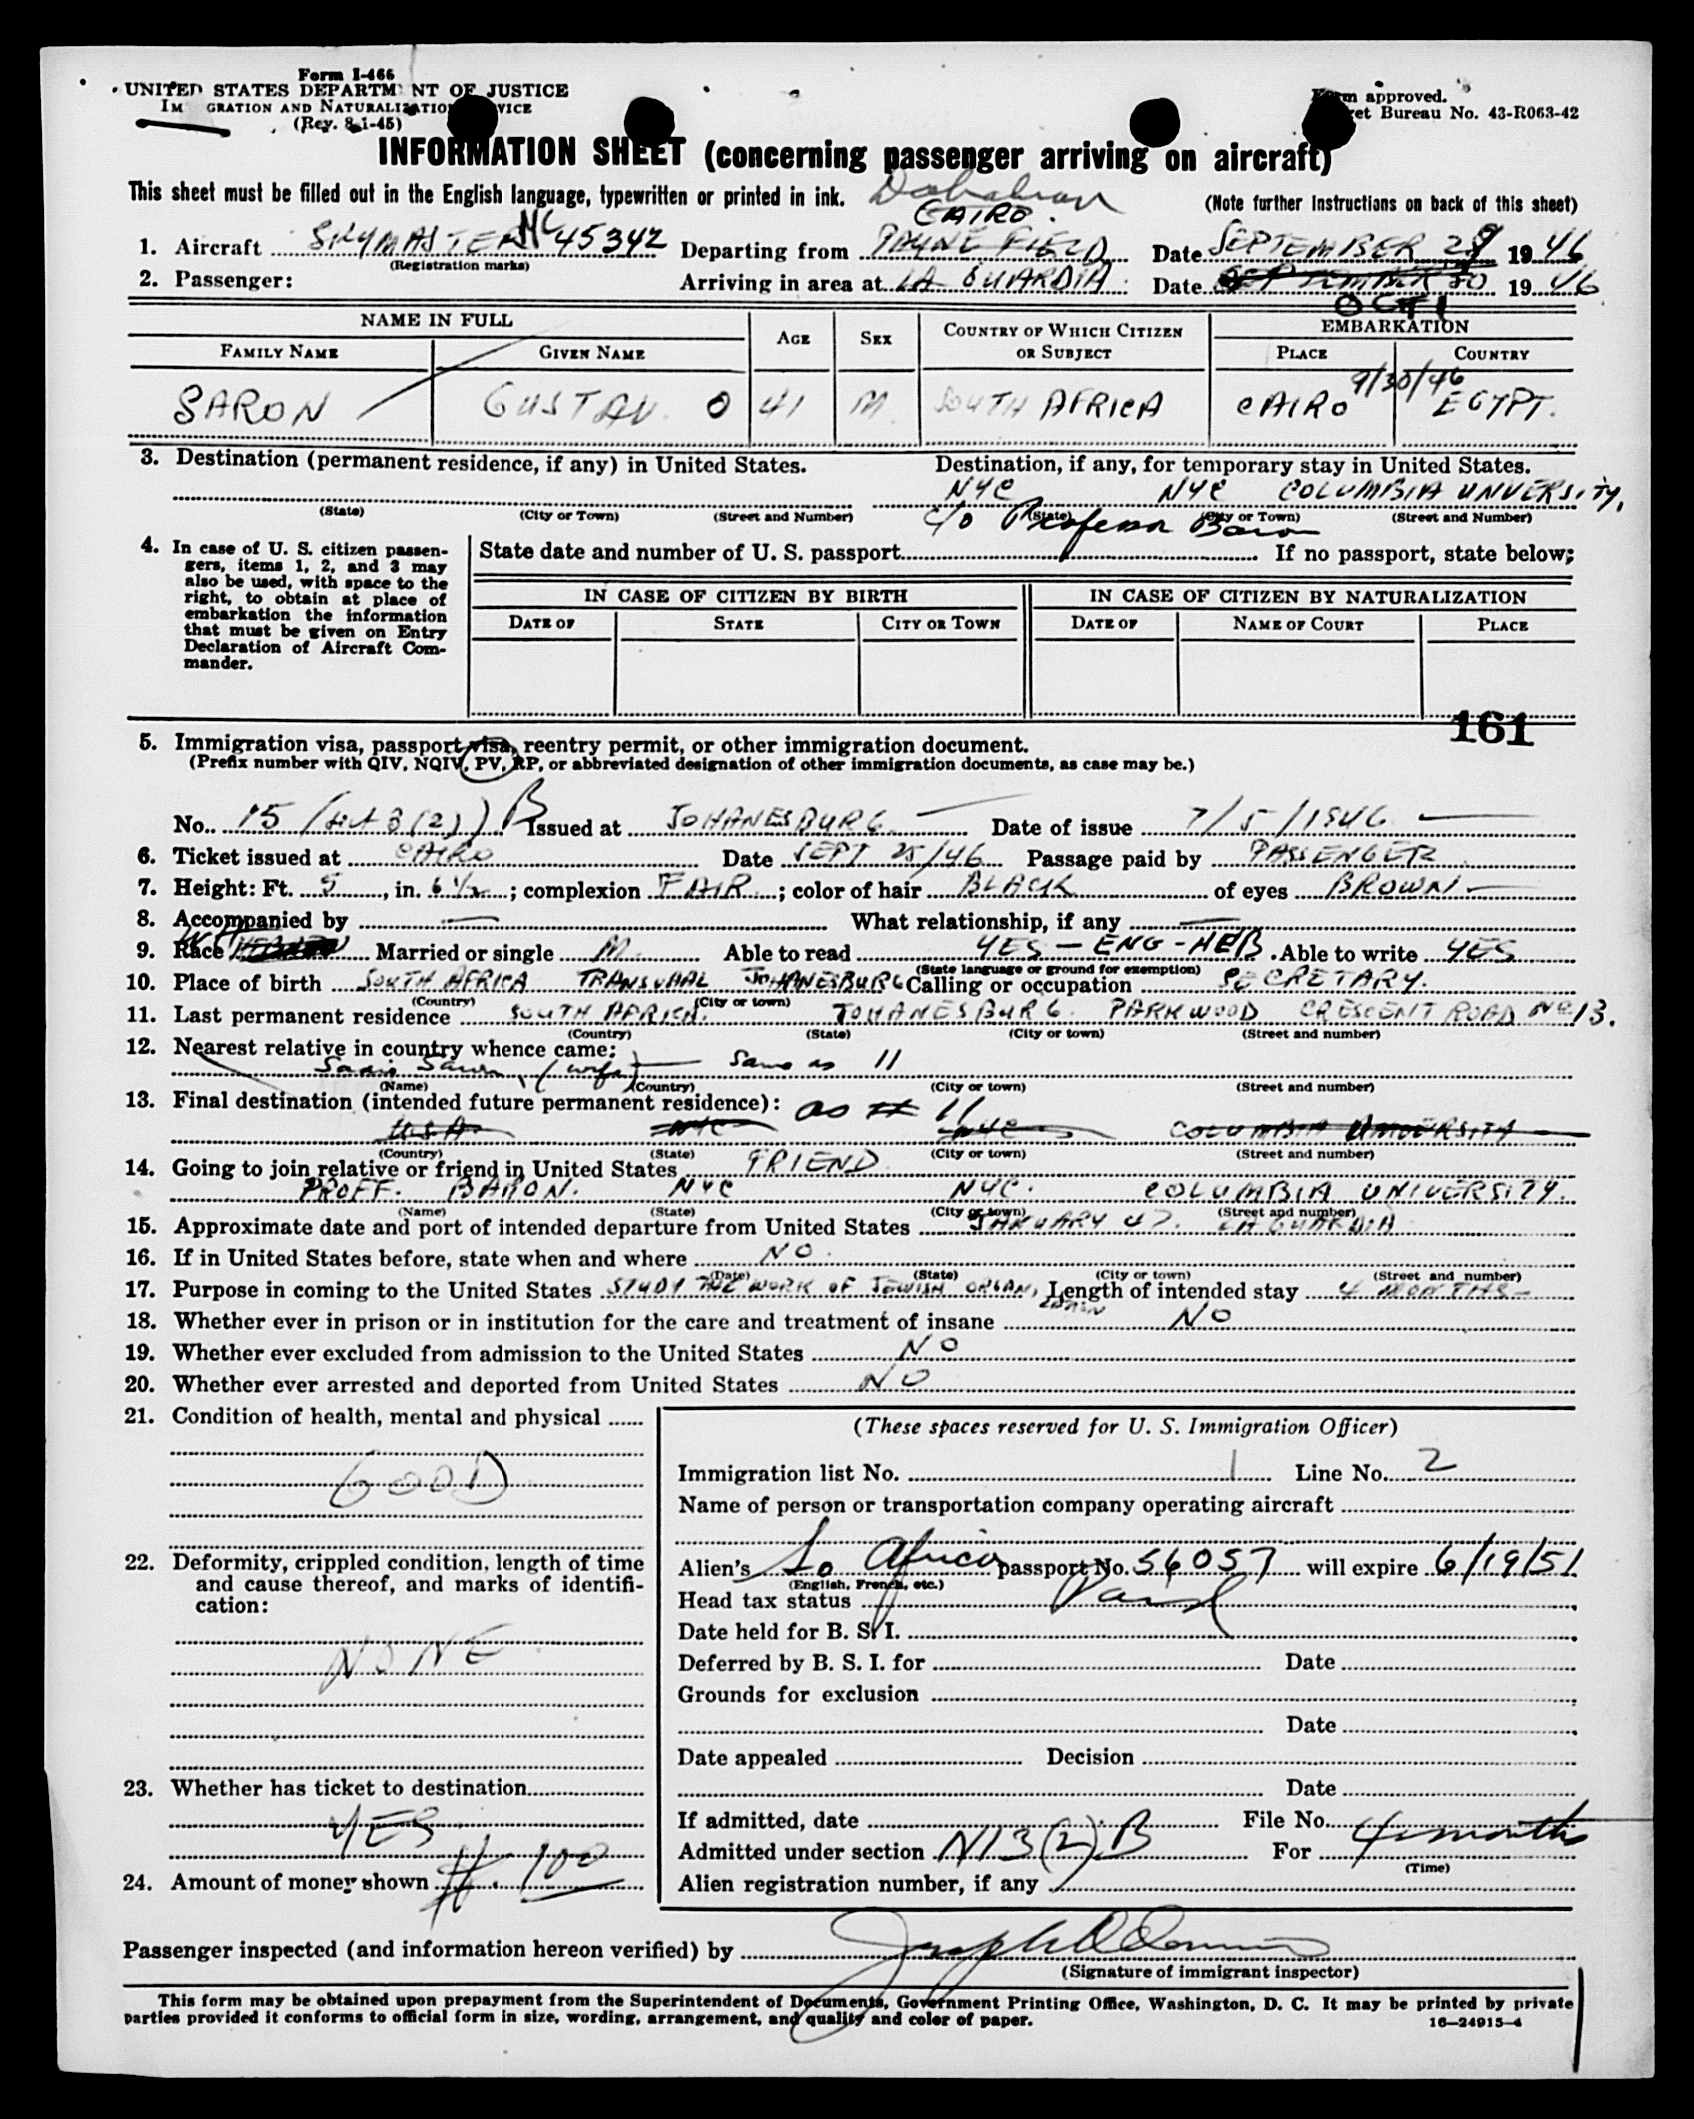 Form I-466
UNITED STATES DEPARTM NT OF JUSTICE
IM GRATION AND NATURALIZATION VICE
(Rev. 8-1-45)
m approved.
et Bureau No. 43-R063-42
INFORMATION SHEET (concerning passenger arriving on aircraft)
This sheet must be filled out in the English language, typewritten or printed in ink.
(Note further instructions on back of this sheet)
CAIRO.
1. Aircraft SKYMASTER NC 45342 Departing from PAYNE FIELD Date SEPTEMBER 29 1946
(Registration marks)
2. Passenger: Arriving in area at LA GUARDIA Date SEPTEMBER 30 1946
OCT 1
NAME IN FULL AGE SEX COUNTRY OF WHICH CITIZEN OR SUBJECT EMBARKATION
FAMILY NAME GIVEN NAME PLACE COUNTRY
9/30/46
SARON GUSTAV O 41 M. SOUTH AFRICA CAIRO EGYPT.
3. Destination (permanent residence, if any) in United States. Destination, if any, for temporary stay in United States.
NYC NYC COLUMBIA UNVERSITY.
(State) (City or Town) (Street and Number) (State) (City or Town) (Street and Number)
c/o Professor Baron
4. In case of U. S. citizen passengers, items 1, 2, and 3 may also be used, with space to the right, to obtain at place of embarkation the information that must be given on Entry Declaration of Aircraft Commander.
State date and number of U. S. passport If no passport, state below;
IN CASE OF CITIZEN BY BIRTH IN CASE OF CITIZEN BY NATURALIZATION
DATE OF STATE CITY OR TOWN DATE OF NAME OF COURT PLACE
161
5. Immigration visa, passport visa, reentry permit, or other immigration document.
(Prefix number with QIV, NQIV, PV, RP, or abbreviated designation of other immigration documents, as case may be.)
No. 15 (Sect 3(2)) B Issued at JOHANESBURG Date of issue 7/5/1946
6. Ticket issued at CAIRO Date SEPT 25/46 Passage paid by PASSENGER
7. Height: Ft. 5, in. 6 1/2; complexion FAIR; color of hair BLACK of eyes BROWN
8. Accompanied by — What relationship, if any —
9. Race Married or single M. Able to read YES - ENG - HEB. Able to write YES
(State language or ground for exemption)
10. Place of birth SOUTH AFRICA TRANSVAAL JOHANESBURG Calling or occupation SECRETARY.
(Country) (City or town)
11. Last permanent residence SOUTH AFRICA. JOHANESBURG. PARKWOOD CRESCENT ROAD No 13.
(Country) (State) (City or town) (Street and number)
12. Nearest relative in country whence came:
Saron (wife) Same as 11
(Name) (Country) (City or town) (Street and number)
13. Final destination (intended future permanent residence): as # 11
U.S.A. NYC NYC COLUMBIA UNIVERSITY
(Country) (State) (City or town) (Street and number)
14. Going to join relative or friend in United States FRIEND
PROFF. BARON. NYC NYC. COLUMBIA UNIVERSITY.
(Name) (State) (City or town) (Street and number)
15. Approximate date and port of intended departure from United States JANUARY 47. LA GUARDIA
16. If in United States before, state when and where NO.
(Date) (State) (City or town) (Street and number)
17. Purpose in coming to the United States STUDY THE WORK OF JEWISH ORGAN, Length of intended stay 4 MONTHS-
18. Whether ever in prison or in institution for the care and treatment of insane NO
19. Whether ever excluded from admission to the United States NO
20. Whether ever arrested and deported from United States NO
21. Condition of health, mental and physical
GOOD
22. Deformity, crippled condition, length of time and cause thereof, and marks of identification:
NONE
23. Whether has ticket to destination
YES
24. Amount of money shown $. 100
(These spaces reserved for U. S. Immigration Officer)
Immigration list No. 1 Line No. 2
Name of person or transportation company operating aircraft
Alien's So Africa passport No. 56057 will expire 6/19/51
(English, French, etc.)
Head tax status Paid
Date held for B. S. I.
Deferred by B. S. I. for Date
Grounds for exclusion
Date
Date appealed Decision
Date
If admitted, date File No.
Admitted under section N13(2).B For 4 months
(Time)
Alien registration number, if any
Passenger inspected (and information hereon verified) by
(Signature of immigrant inspector)
This form may be obtained upon prepayment from the Superintendent of Documents, Government Printing Office, Washington, D. C. It may be printed by private
parties provided it conforms to official form in size, wording, arrangement, and quality and color of paper.
16—24915-4